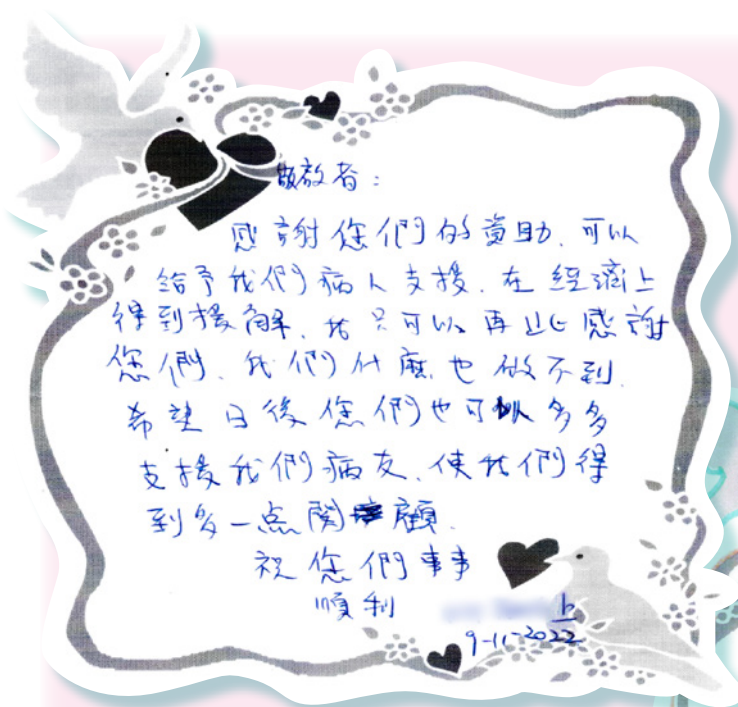 敬啟者：
感謝您們的資助、可以
給予我們病人支援、在經濟上
得到援解、我只可以再此感謝
您們、我們什麼也做不到、
希望日後您們也可以多多
支援我們病友、使我們得
到多一点関顧、
祝您們事事
順利
上
9-11-2022